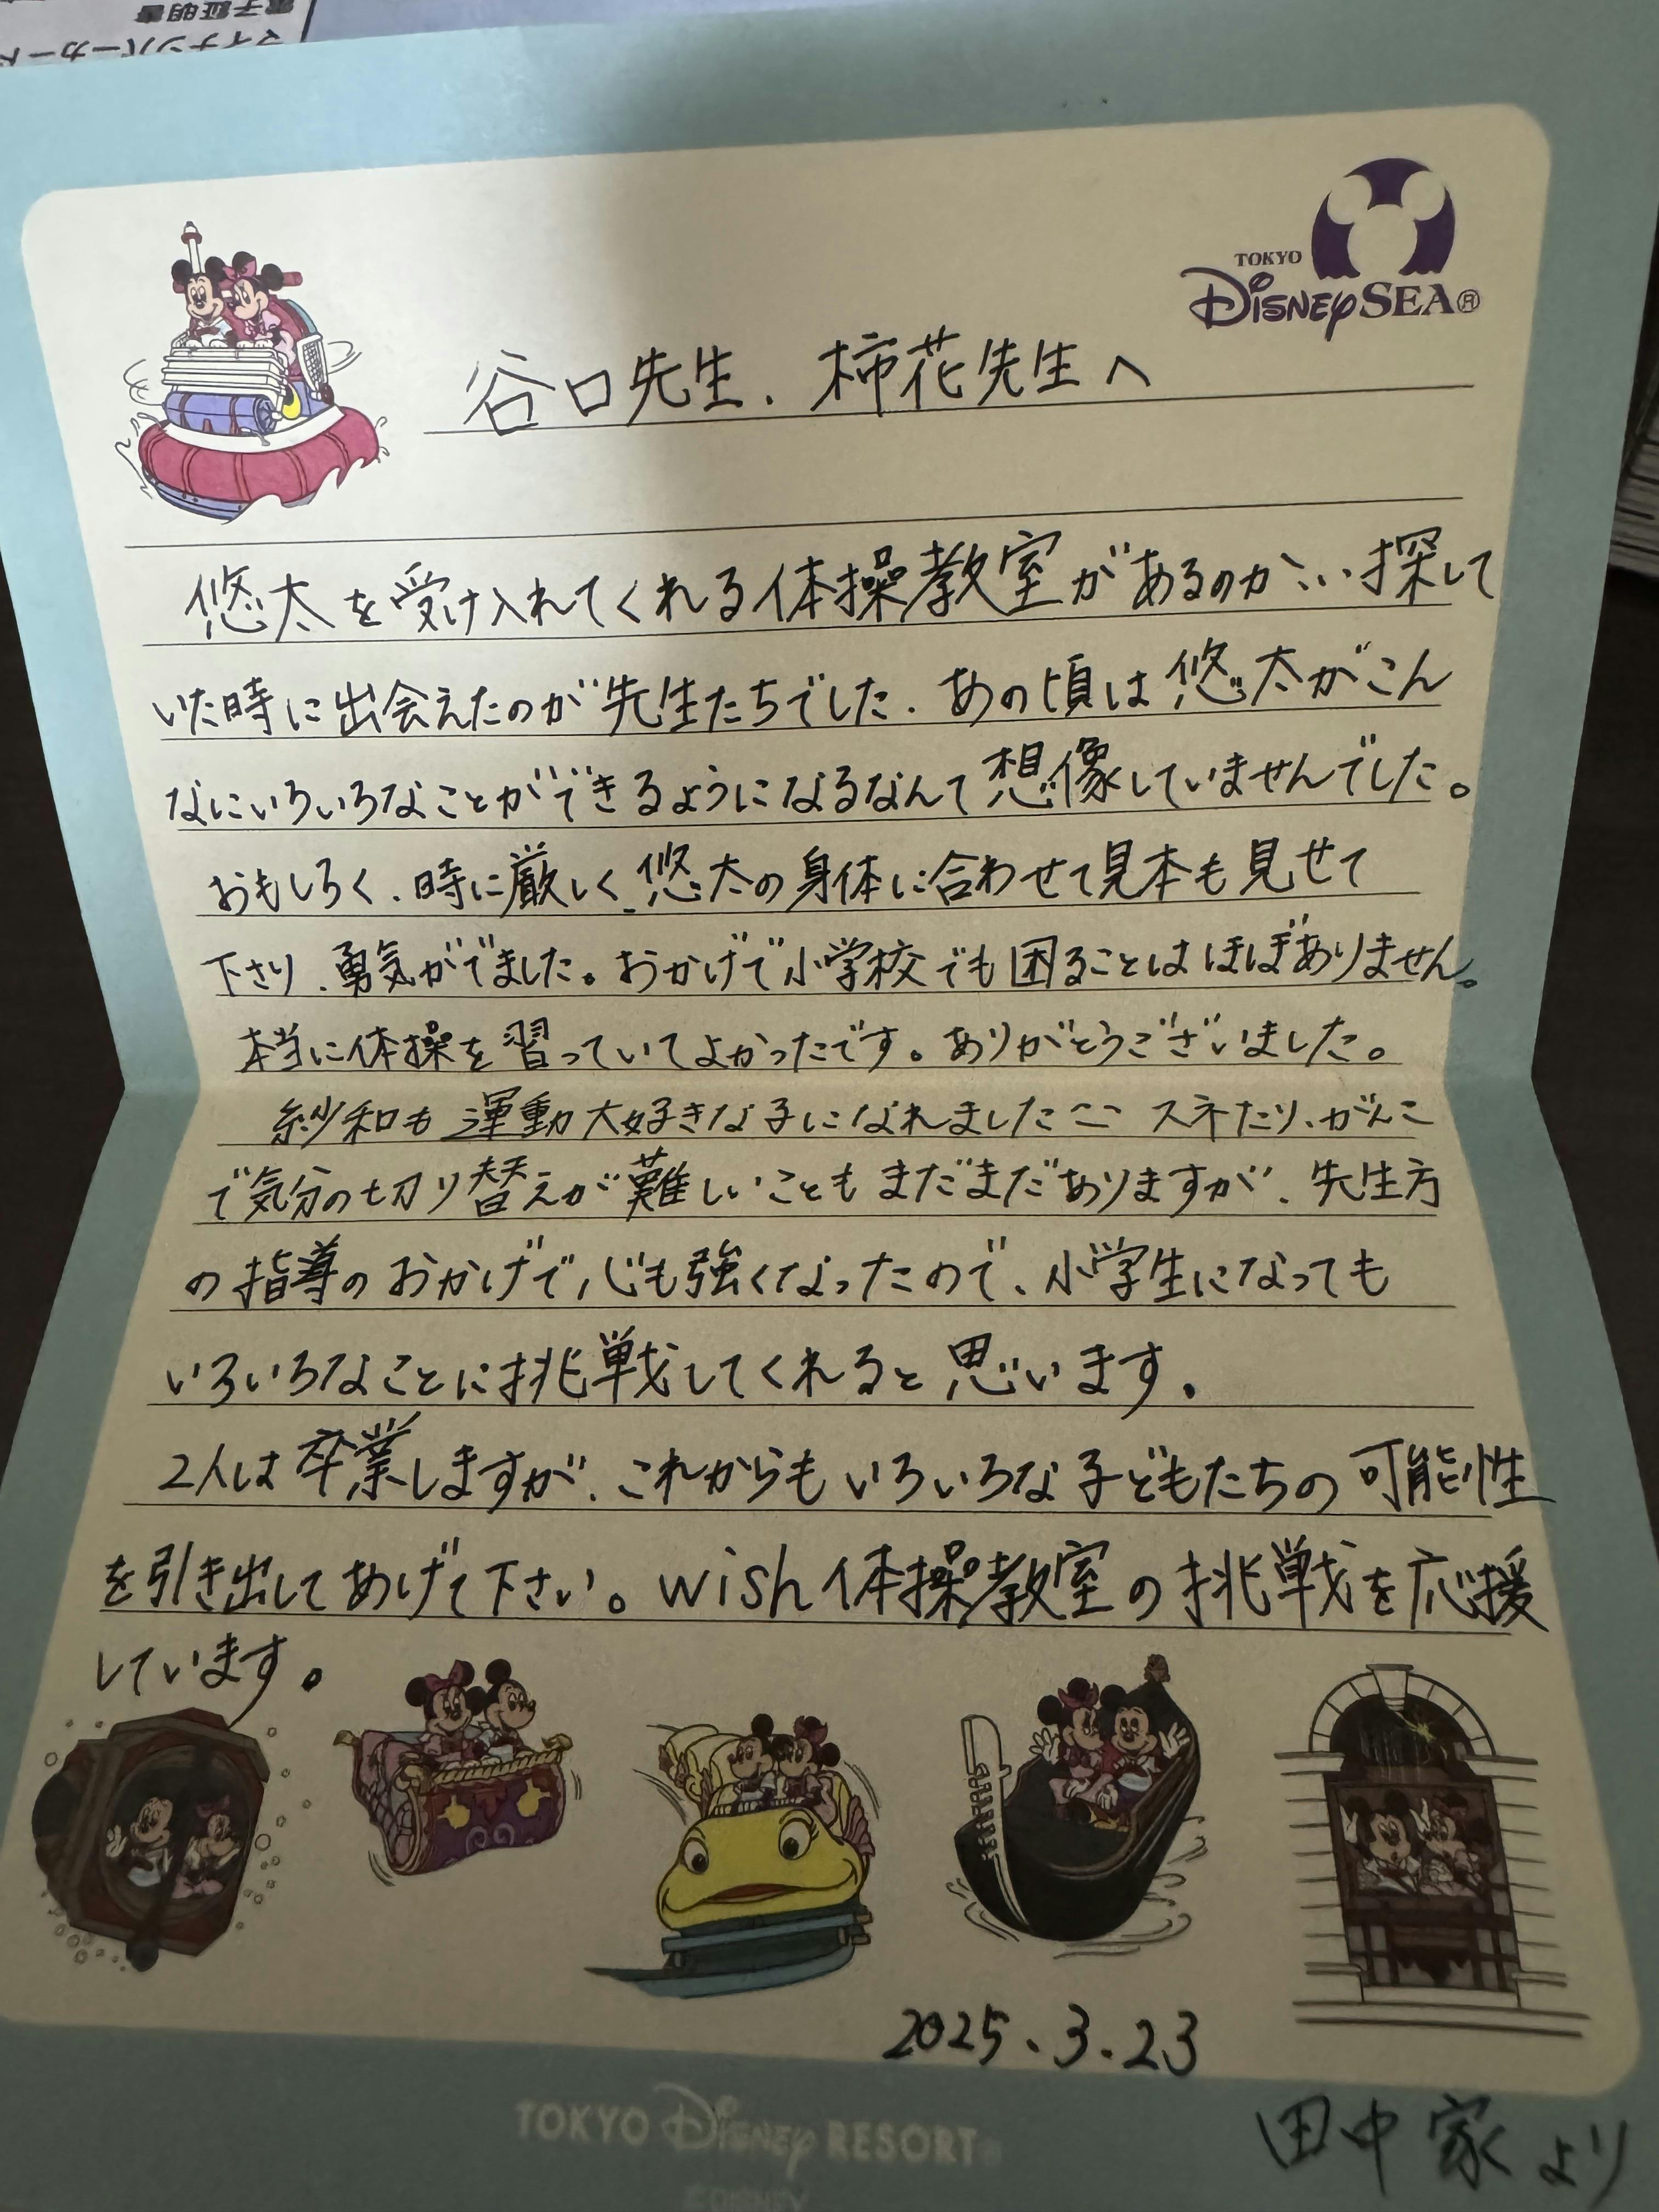 マイナンバーカード
電子証明書
TOKYO
DISNEY SEA®
谷口先生、柿花先生へ
悠太を受け入れてくれる体操教室があるのか…探して
いた時に出会えたのが先生たちでした。あの頃は悠太がこん
なにいろいろなことができるようになるなんて想像していませんでした。
おもしろく、時に厳しく、悠太の身体に合わせて見本も見せて
下さり、勇気がでました。おかげで小学校でも困ることはほぼありません。
本当に体操を習っていてよかったです。ありがとうございました。
紗和も運動大好きな子になれました^^ スネたり、がんこ
で気分の切り替えが難しいこともまだまだありますが、先生方
の指導のおかげで心も強くなったので、小学生になっても
いろいろなことに挑戦してくれると思います。
2人は卒業しますが、これからもいろいろな子どもたちの可能性
を引き出してあげて下さい。wish体操教室の挑戦を応援
しています。
2025.3.23
TOKYO DISNEY RESORT®
©DISNEY
田中家より